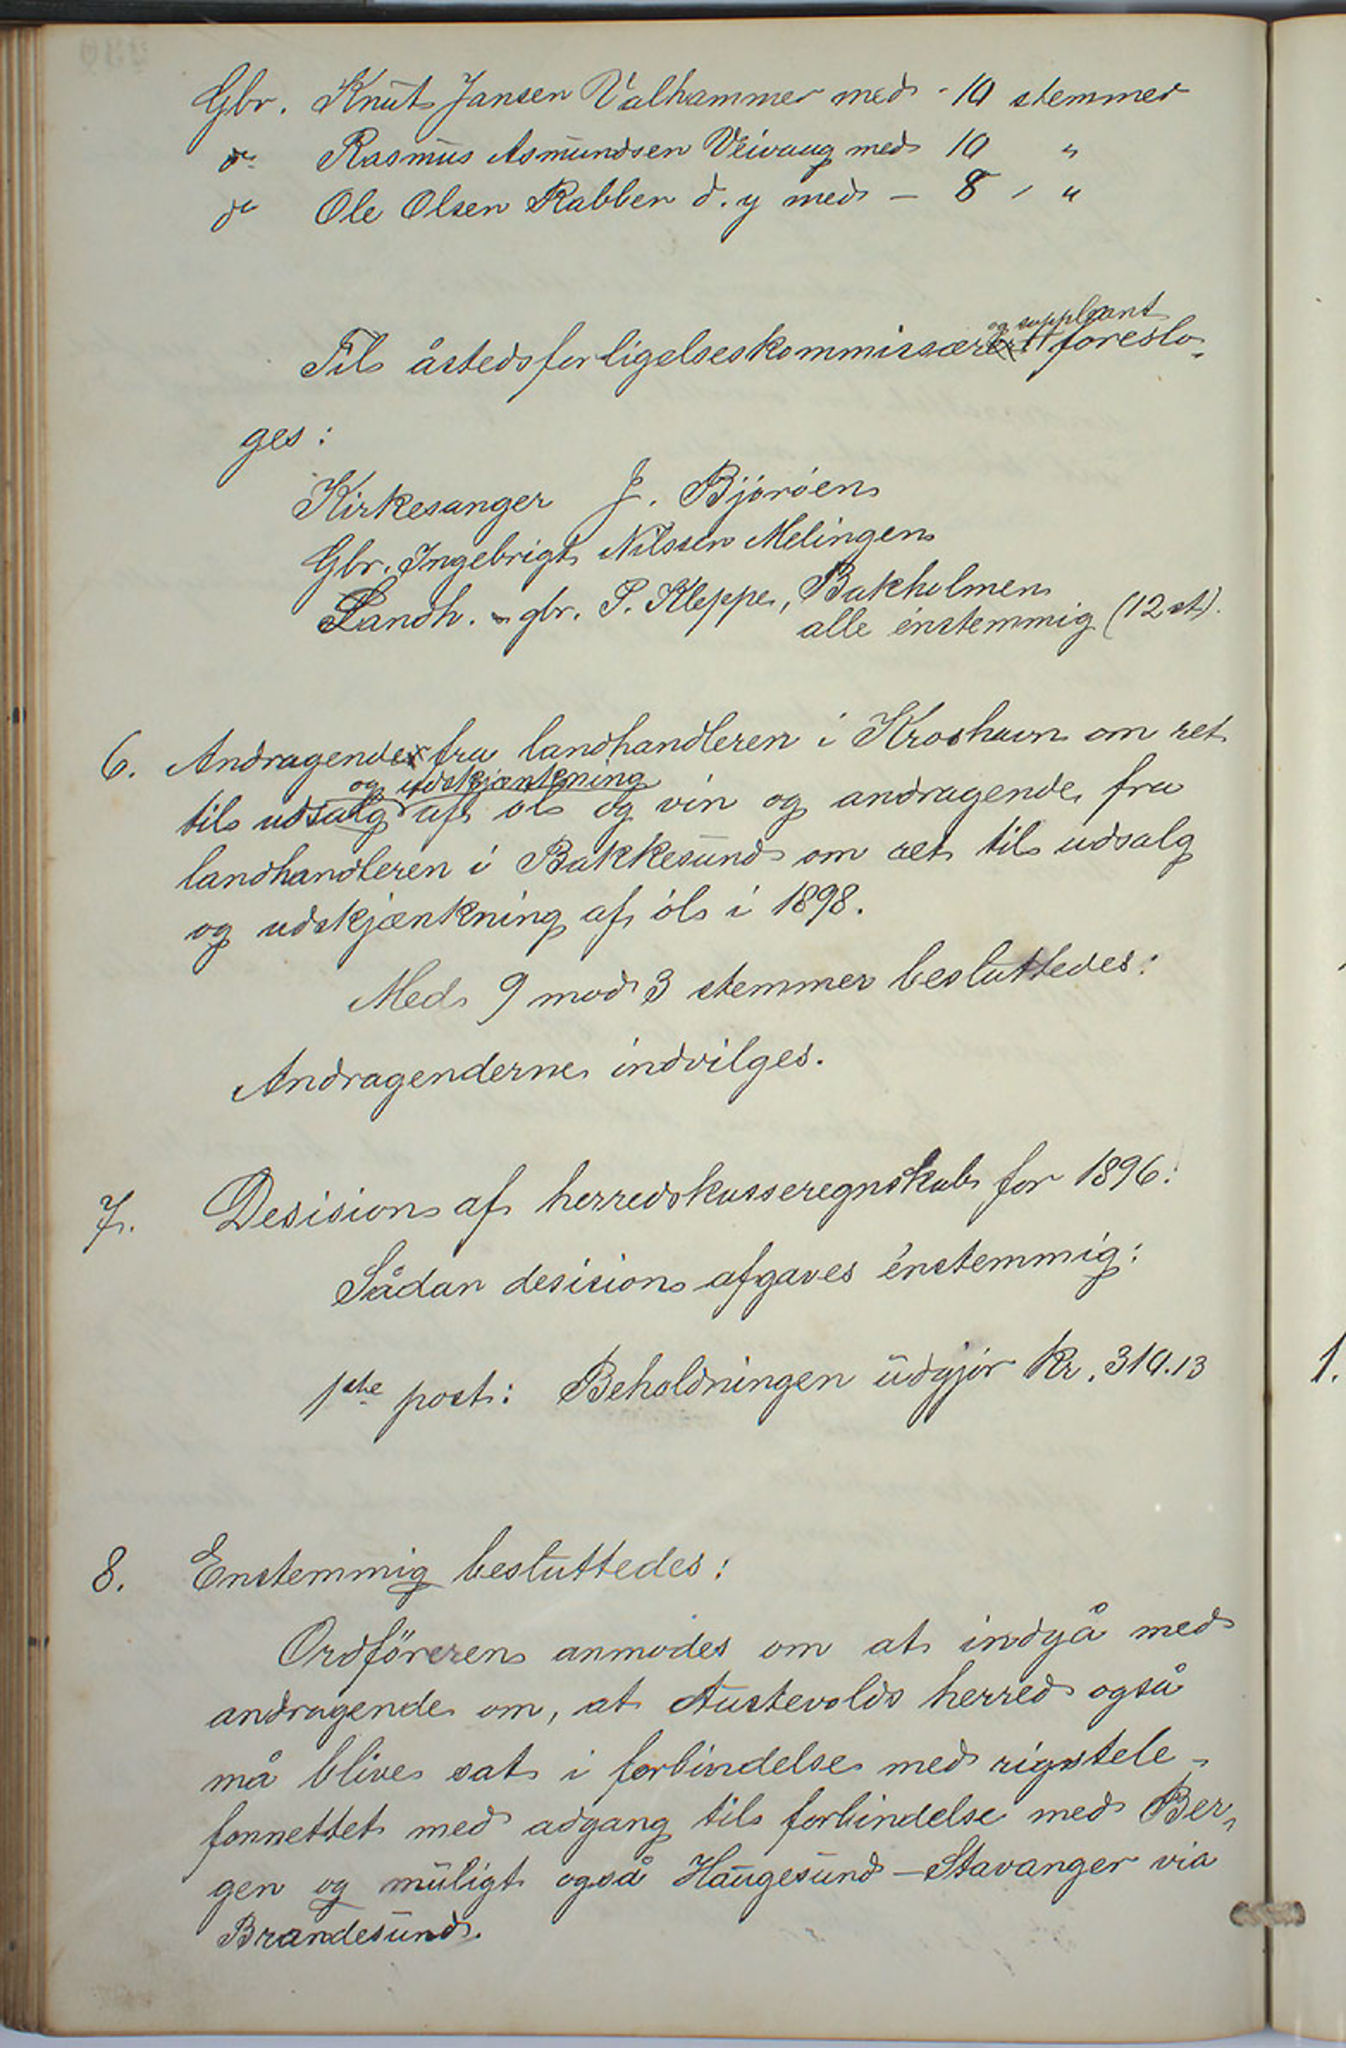 Gbr. Knut Jansen Valhammer med - 10 stemmer
do Rasmus Asmundsen Veivaag med 10 "
do Ole Olsen Rabben d. y med - 8 "
og suppleant
Til åstedsforligelseskommissær foreslo-
ges:
Kirkesanger J. Bjørøen
Gbr. Ingebrigt Nilssen Melingen
Landh. - gbr. P. Kleppe, Bakholmen
alle énstemmig (12 st).
6. Andragende fra landhandleren i Kroshavn om ret
og udskjænkning
til udsalg af øl og vin og andragende fra
landhandleren i Bakkesund om ret til udsalg
og udskjænkning af øl i 1898.
Med 9 mod 3 stemmer besluttedes:
Andragenderne indvilges.
7. Desision af herredskasseregnskab for 1896:
Sådan desision afgaves énstemmig:
1ste post: Beholdningen udgjør kr. 310.13
8. Enstemmig besluttedes:
Ordföreren anmodes om at indgå med
andragende om, at Austevolds herred også
må blive sat i forbindelse med rigstele-
fonnettet med adgang til forbindelse med Ber-
gen og muligt også Haugesund - Stavanger via
Brandesund.
1.